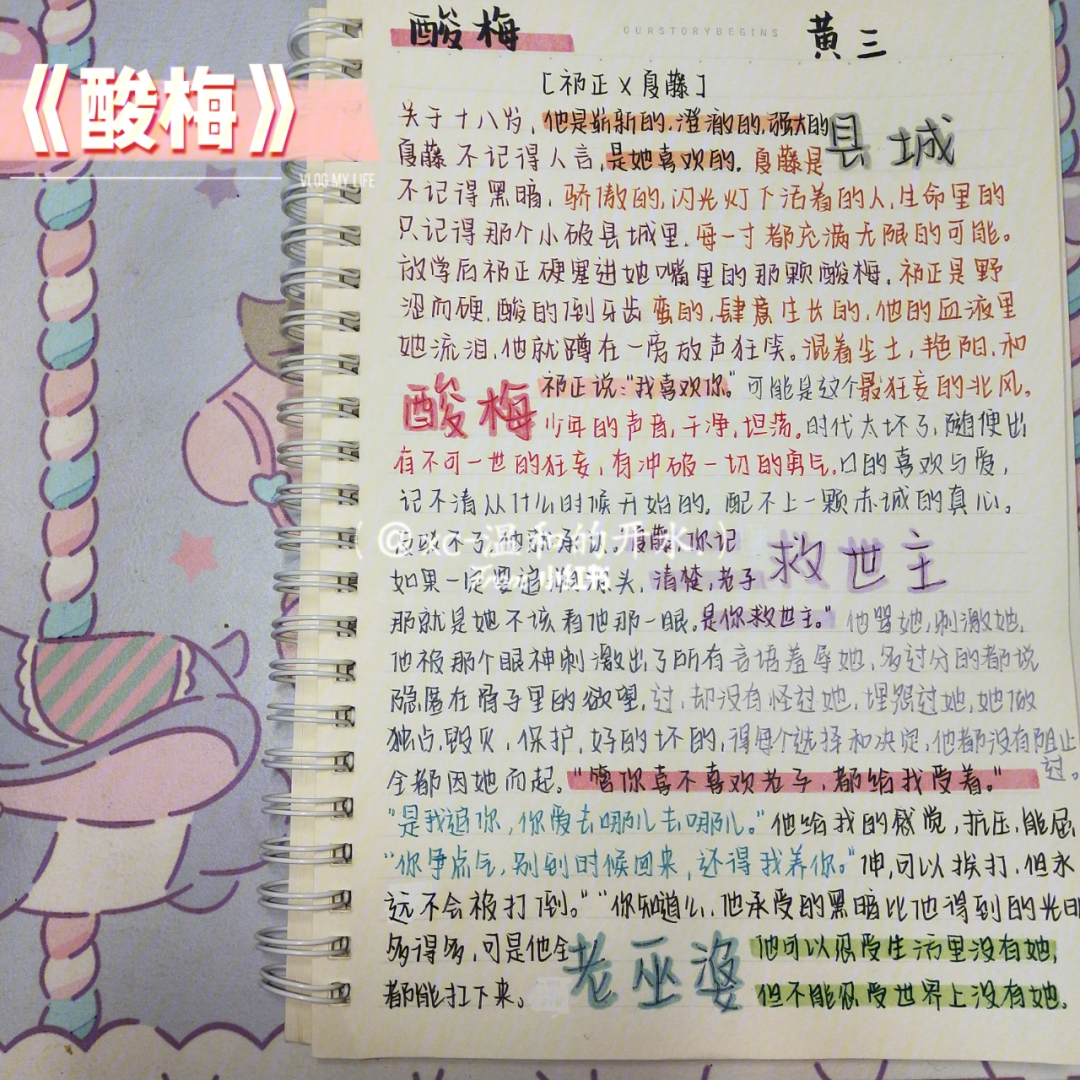 《酸梅》
VLOG MY LIFE
酸梅
OURSTORYBEGINS
黄三
[祁正X夏藤]
关于十八岁，他是崭新的.澄澈的,强大的
县城
夏藤不记得人言，是她喜欢的. 夏藤是
不记得黑暗，骄傲的,闪光灯下活着的人,生命里的
只记得那个小破县城里. 每一寸都充满无限的可能。
放学后祁正硬塞进她嘴里的那颗酸梅. 祁正是野
涩而硬.酸的倒牙齿 蛮的,肆意生长的，他的血液里
她流泪,他就蹲在一旁放声狂笑。混着尘土，艳阳.和
酸梅
祁正说:“我喜欢你。”可能是这个最狂妄的北风。
少年的声音,干净,坦荡。时代太坏了,随便出
有不可一世的狂妄,有冲破一切的勇气.口的喜欢与爱,
记不清从什么时候开始的。配不上一颗赤诚的真心。
夏藤,你记
救世主
如果一定要追 头, 清楚,老子
那就是她不该看他那一眼.是你救世主。” 他骂她,刺激她.
他被那个眼神刺激出了所有言语羞辱她,多过分的都说
隐匿在骨子里的欲望. 过,却没有怪过她,埋怨过她,她做
独占,毁灭,保护.好的坏的,得每个选择和决定,他都没有阻止
过。
全都因她而起。“管你喜不喜欢老子,都给我受着。”
“是我追你,你爱去哪儿去哪儿。”他给我的感觉,抗压,能屈
“你争点气,别到时候回来,还得我养你。”伸,可以挨打.但永
远不会被打倒。”“你知道么,他承受的黑暗比他得到的光明
多得多,可是他全
老巫婆
他可以忍受生活里没有她,
都能扛下来。
但不能忍受世界上没有她.